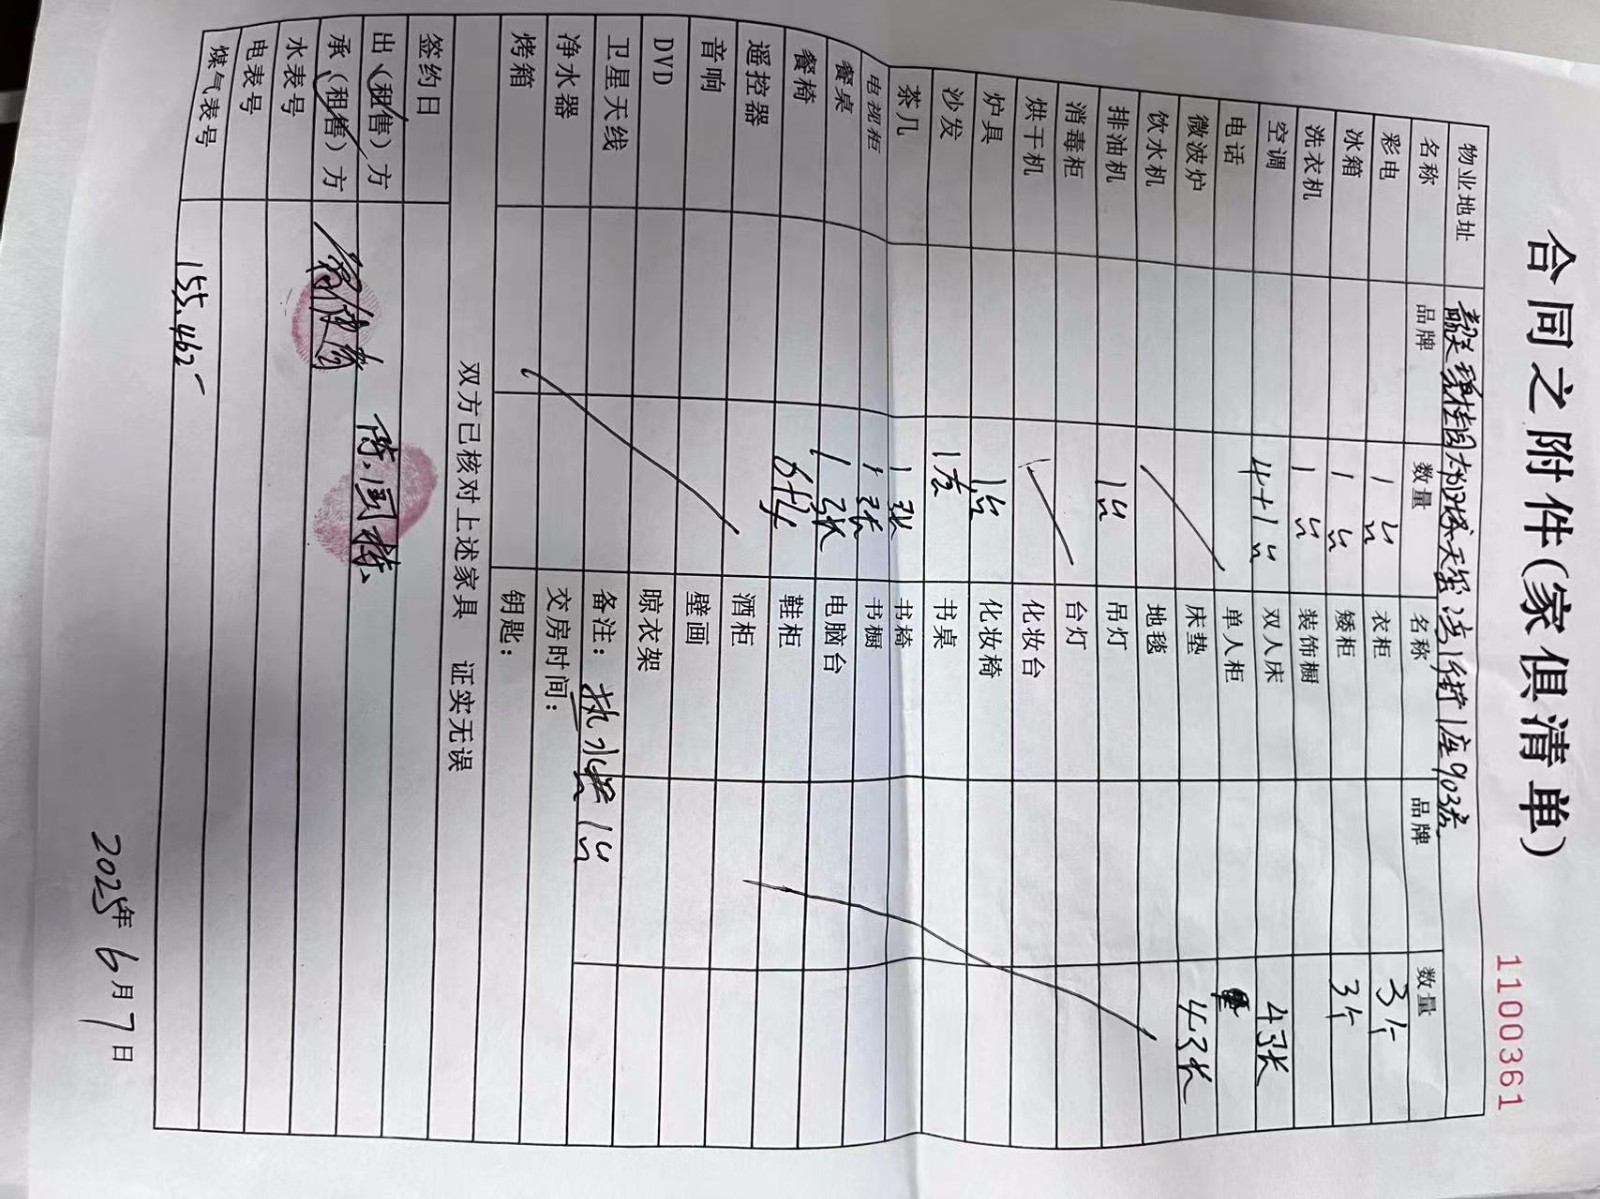 合同之附件(家俱清单)
1100361
物业地址 碧桂园 1街1座903房
名称 品牌 数量 名称 品牌 数量
彩电 1台 衣柜 3个
冰箱 1台 矮柜 3个
洗衣机 1台 装饰橱
空调 4+1台 双人床 4张
电话 单人柜
微波炉 床垫 4张
饮水机 地毯
排油机 1台 吊灯
消毒柜 台灯
烘干机 化妆台
炉具 1台 化妆椅
沙发 1套 书桌
茶几 1张 书椅
电视柜 1张 书橱
餐桌 1张 电脑台
餐椅 6张 鞋柜
遥控器 酒柜
音响 壁画
DVD 晾衣架
卫星天线 备注: 热水器1台
净水器 交房时间:
烤箱 钥匙:
双方已核对上述家具 证实无误
签约日
出(租售)方
承(租售)方
水表号
电表号
煤气表号 155.462
2025年6月7日